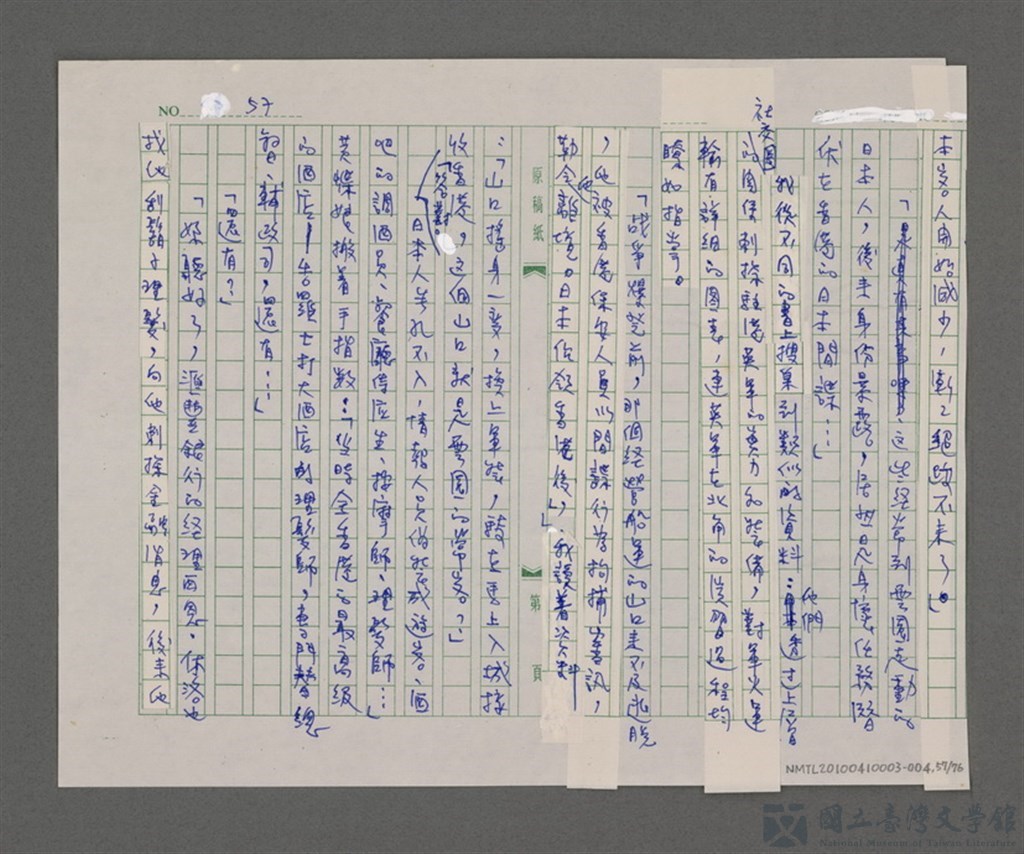 NO. 57
本客人開始減少，漸漸絕跡不來了。」
「這些經常到雲園走動的
日本人，後來身份暴露，居然是身懷任務潛
伏在香港的日本間諜…」
我從不同的書上搜集到類似的資料：他們透過上層
社交圈的關係刺探駐港英軍的實力和裝備，對軍火運
輸有詳細的圖表，連英軍在北角的從習過程均
瞭如指掌。
「戰爭爆發前，那個經營船運的山口來不及逃脫
，他被香港保安人員以間諜行為拘捕審訊，
勒令離境。日本佔領香港後，」我讀着資料
：「山口搖身一變，換上軍裝，騎在馬上入城接
收香港，這個山口就是雲園的常客？」
「答對。
日本人無孔不入，情報人員偽裝成遊客、酒
吧的調酒員、餐廳侍應生、按摩師、理髮師…」
黃蝶娘搬着手指數：「當時全香港的最高級
的酒店—告羅士打大酒店的理髮師，專門替總
督、輔政司，還有…」
「還有？」
「妳聽好了，滙豐銀行的經理西恩·修洛也
找他剃鬍子理髮，向他刺探金融消息，後來他
原稿紙
第 頁
NMTL20100410003-004.57/76
國立臺灣文學館
National Museum of Taiwan Literature